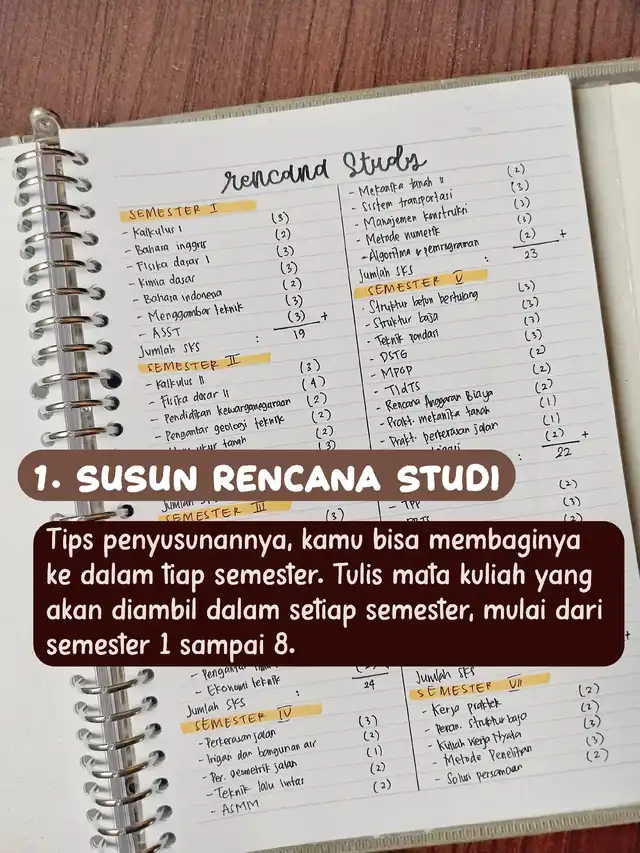 rencana Study
SEMESTER I
- Kalkulus 1 (3)
- Bahasa inggris (2)
- Fisika dasar 1 (3)
- Kimia dasar (3)
- Bahasa indonesia (2)
- Menggambar teknik (3)
- ASST (3) +
Jumlah SKS : 19
SEMESTER II
- Kalkulus II (3)
- Fisika dasar II (4)
- Pendidikan kewarganegaraan (2)
- Pengantar geologi teknik (2)
ukur tanah (2)
(3)
1. SUSUN RENCANA STUDI
Jumlah
SEMESTER III
(3)
Tips penyusunannya, kamu bisa membaginya
ke dalam tiap semester. Tulis mata kuliah yang
akan diambil dalam setiap semester, mulai dari
semester 1 sampai 8.
- Pengantar
- Ekonomi teknik
Jumlah SKS : 24
SEMESTER IV
- Perkerasan jalan (3)
- Irigasi dan bangunan air (2)
- Per. Geometrik jalan (1)
- Teknik lalu lintas (2)
- ASMM (2)
- Mekanika tanah II (2)
- Sistem transportasi (3)
- Manajemen konstruksi (3)
- Metode numerik
- Algoritma & pemrograman (2) +
Jumlah SKS : 23
SEMESTER V
- Struktur beton bertulang (3)
- Struktur baja (3)
- Teknik pondasi (3)
- DSTG (3)
- MPGP (2)
- TIdTS (2)
- Rencana Anggaran Biaya (2)
- Prakt. mekanika tanah (1)
- Prakt. perkerasan jalan (1)
(2) +
: 22
(2)
- TPP (3)
(2)
+
Jumlah SKS
SEMESTER VII
- Kerja praktek (2)
- Peran. struktur baja (2)
- Kuliah Kerja Nyata (3)
- Metode Penelitian (3)
- Solusi persamaan (2)